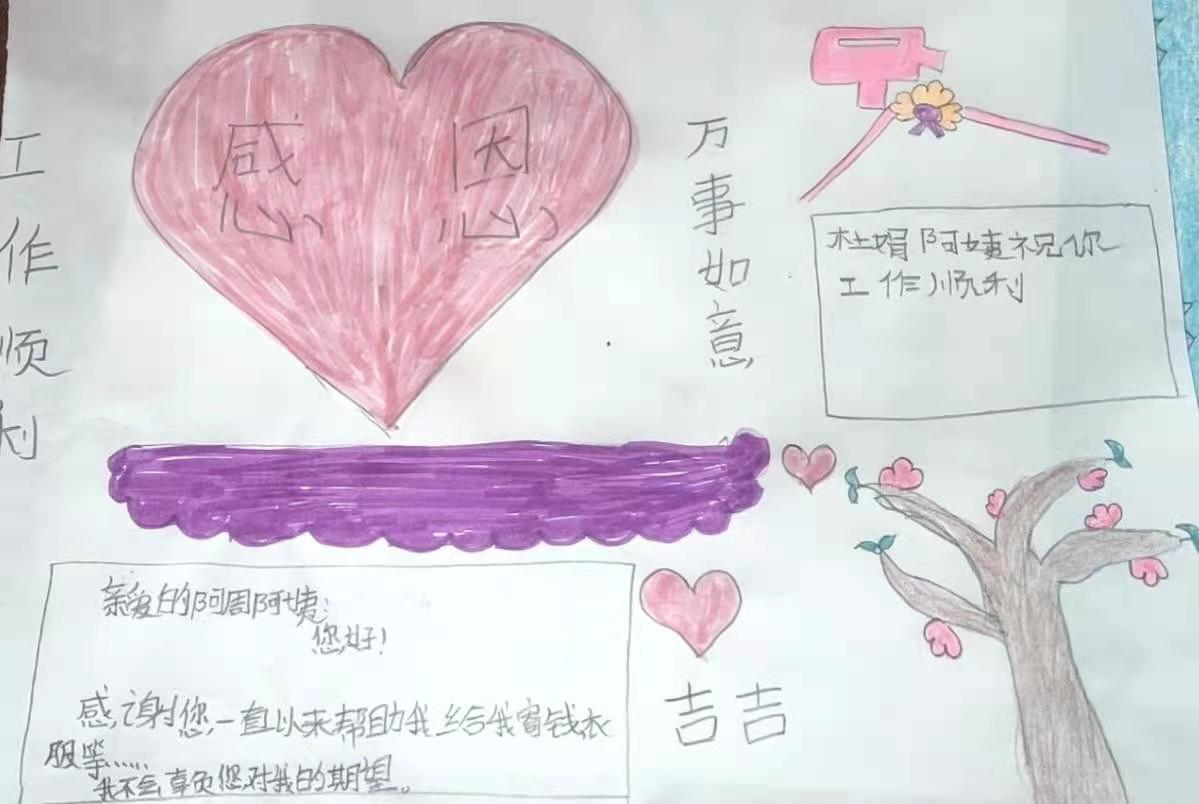 工作顺利
感恩
万事如意
杜娟阿姨祝你
工作顺利
亲爱的阿周阿姨:
您好!
感谢您一直以来帮助我给我寄钱衣
服等......
我不会辜负您对我的期望。
吉吉